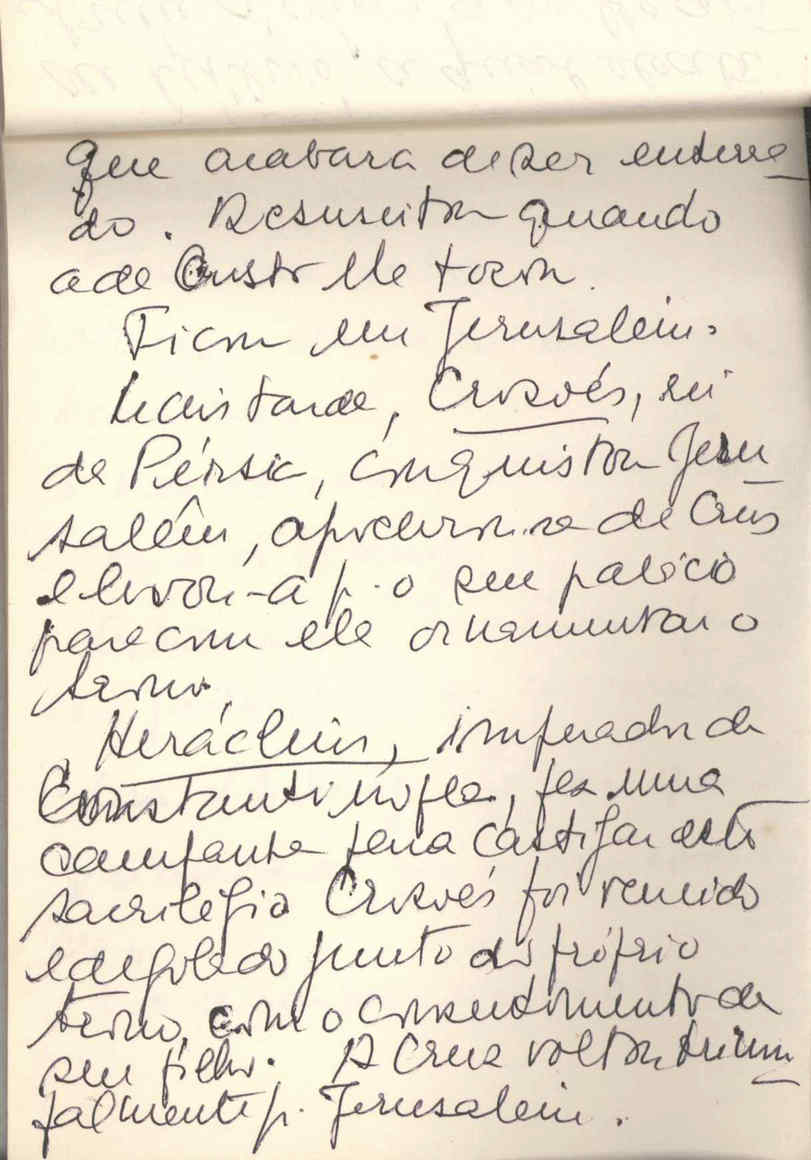 que acabara de ser enterra_
do. Ressuscitou quando
a de Cristo lhe tocou.
Ficou em Jerusalém.
Mais tarde, Crosoés, rei
da Pérsia, conquistou Jeru_
salém, apoderou-se da Cruz
e levou-a p. o seu palácio
para com ela ornamentar o
trono.
Heráclius, imperador de
Constantinopla, fez uma
campanha para castigar este
sacrilégio Crosoés foi vencido
e degolado junto do próprio
trono, com o consentimento de
seu filho. A Cruz voltou triun_
falmente p. Jerusalém.